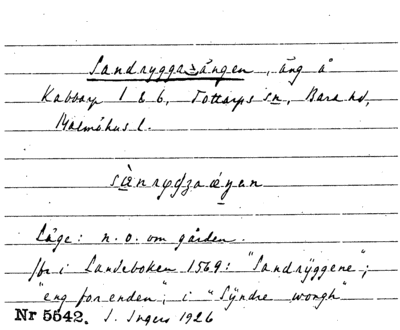 Sandrygga-ången, äng å
Kabbarp 1 & 6, Tottarps sn, Bara hd,
Malmöhus l.
Läge: n.o. om gården.
fbr i Landeboken 1569: "Sandrÿggene";
"eng for enden", i "Sÿndre wongh"
Nr 5542. S. Ingers 1926